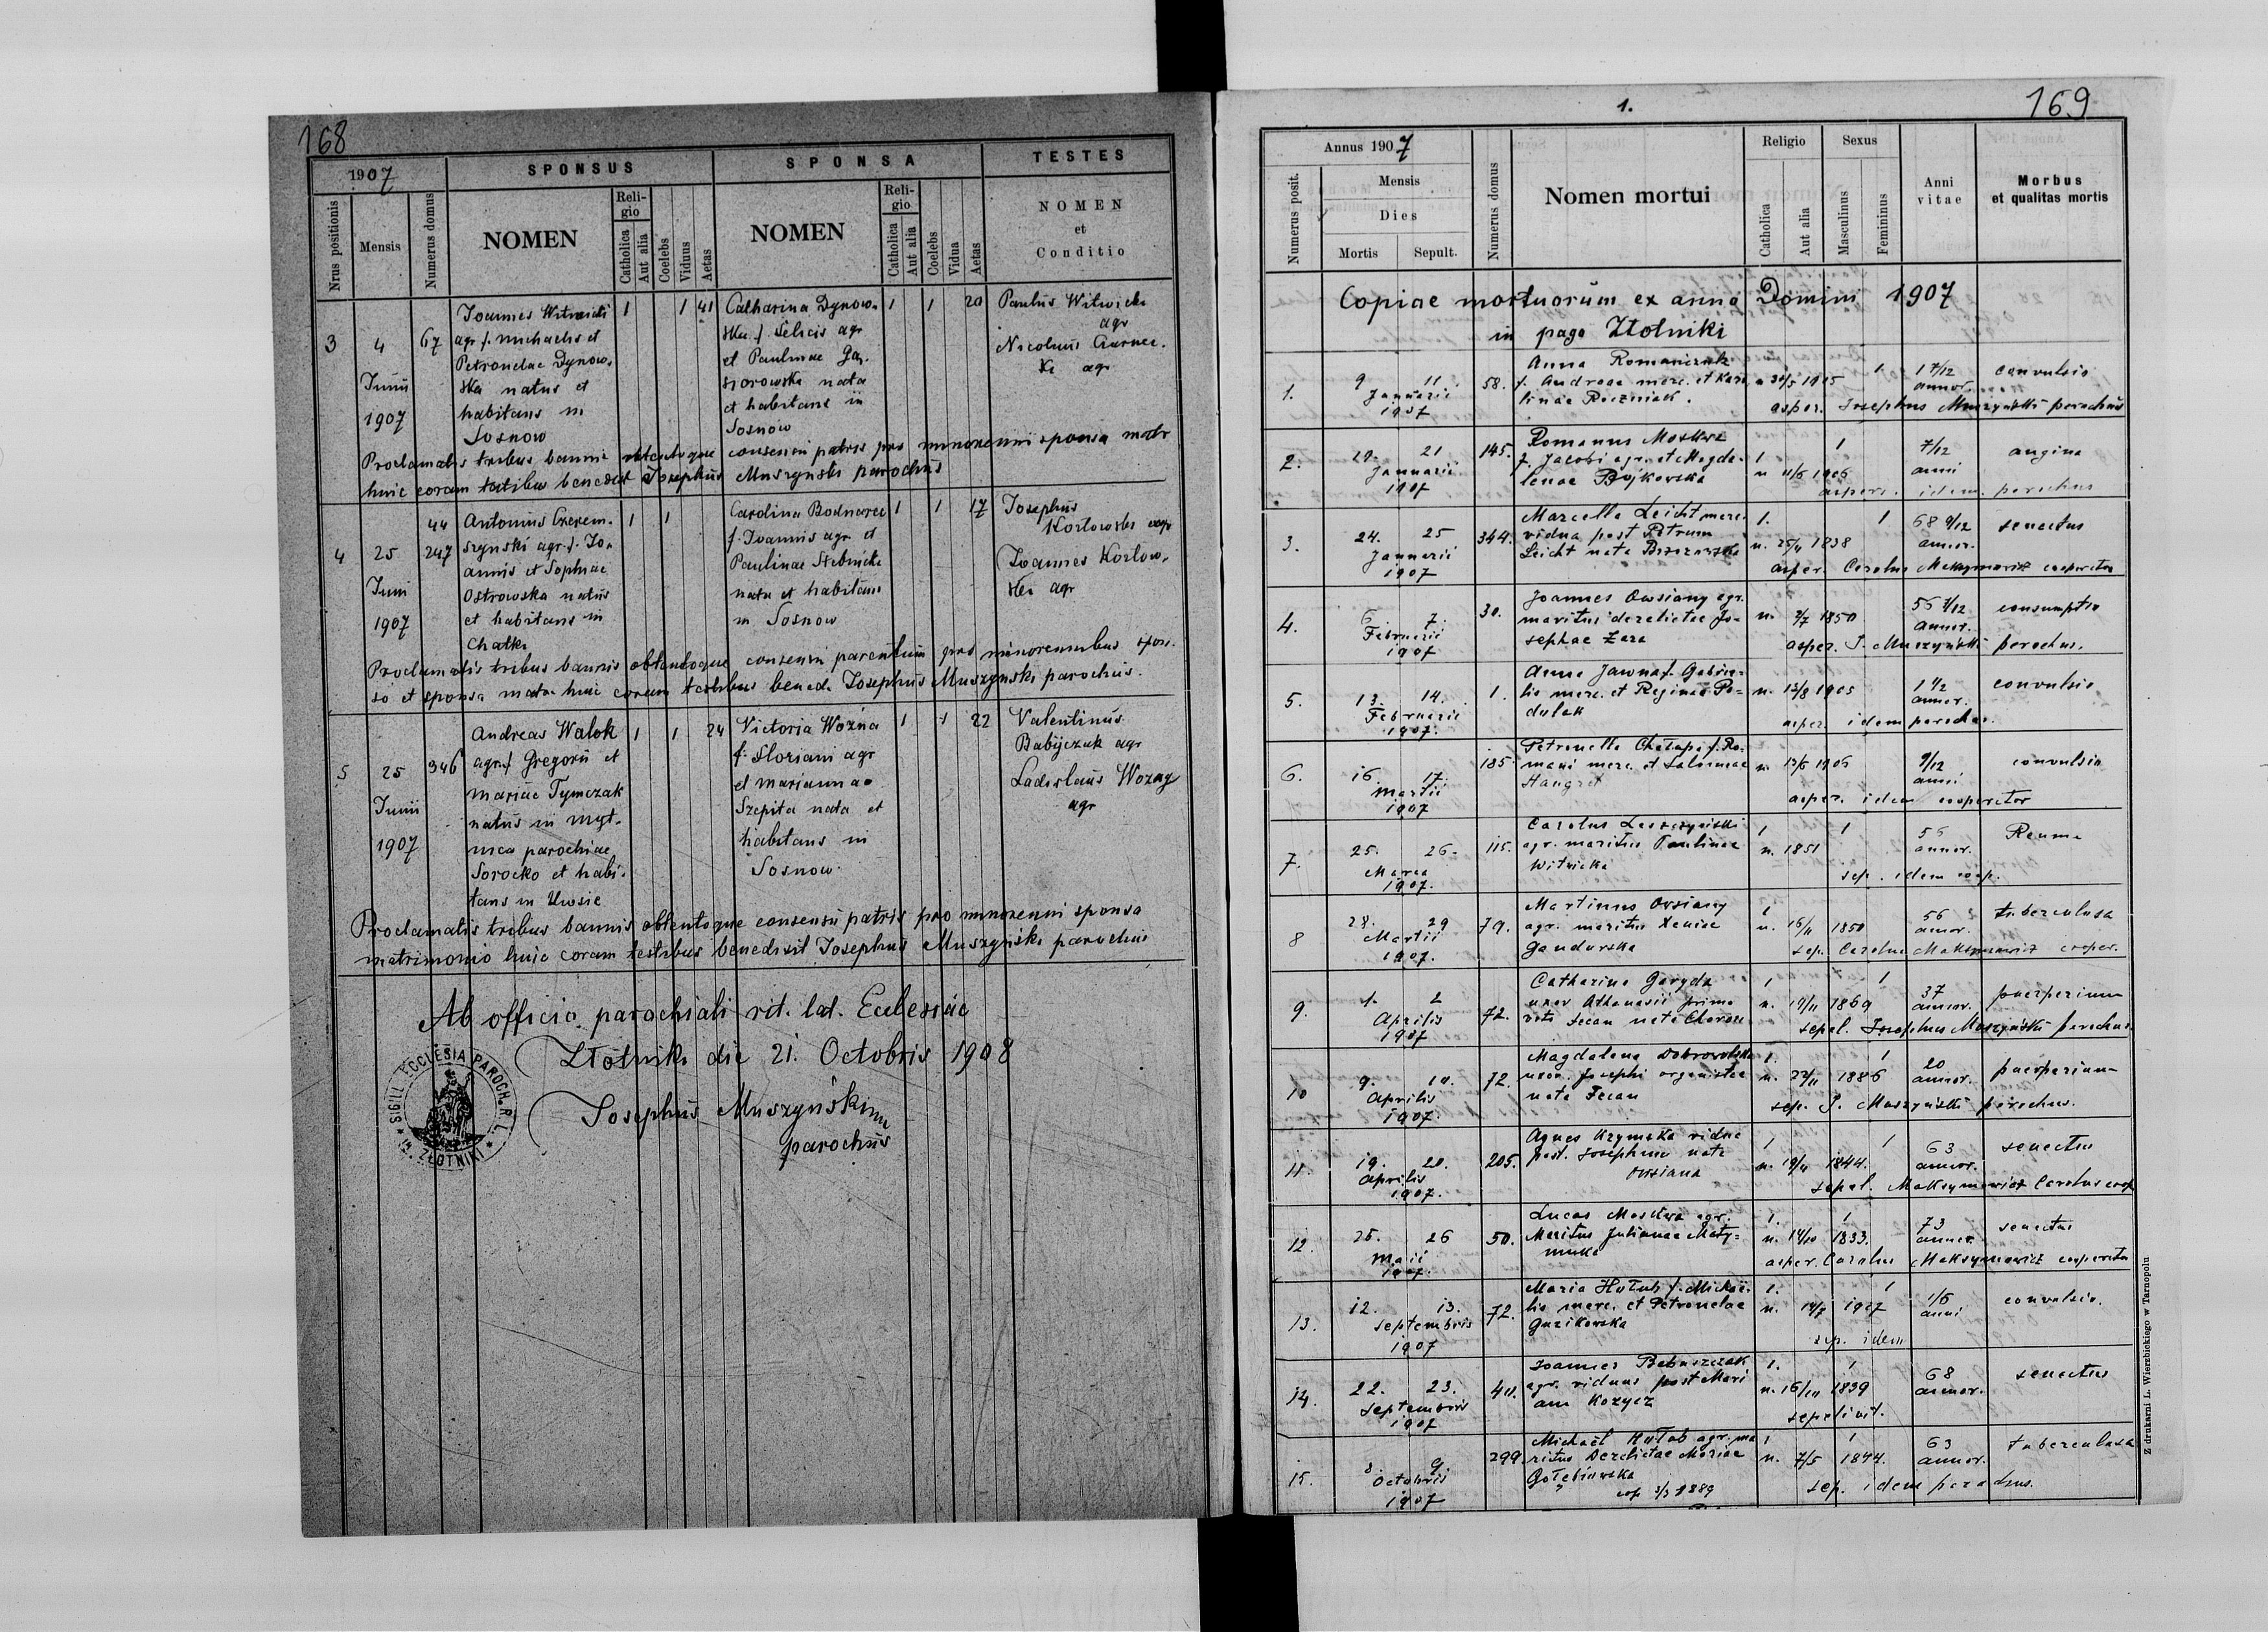 168
1907
SPONSUS
SPONSA
TESTES
Nrus positionis
Mensis
Numerus domus
NOMEN
Religio
Catholica
Aut alia
Coelebs
Viduus
Aetas
NOMEN
Religio
Catholica
Aut alia
Coelebs
Vidua
Aetas
NOMEN
et
Conditio
3
4
Junii
1907
67
Joannes Witwicki
agr f. Michaelis et
Petronelae Dynow-
ska natus et
habitans in
Sosnow
1
1
41
Catharina Dynow-
ska f. Felicis agr
et Paulinae Gą-
siorowska nata
et habitans in
Sosnow
1
1
20
Paulus Witwicki
agr
Nicolaus Czarnec-
ki agr
Proclamatis tribus bannis obtentoque consensu patris pro minorenni sponsa matr
huic coram testibus benedixit Josephus Muszyński parochus
4
25
Juni
1907
44
247
Antonius Czerem-
szynski agr f. Jo-
annis et Sophiae
Ostrowska natus
et habitans in
Chatki
1
1
Carolina Bodnarec
f. Joannis agr et
Paulinae Stebnicka
nata et habitans
in Sosnow
1
1
17
Josephus
Kozlowski agr
Joannes Kozlow-
ski agr
Proclamatis tribus bannis obtentoque consensu parentum pro minorennibus spon-
so et sponsa matr. huic coram testibus bened. Josephus Muszynski parochus.
5
25
Junii
1907
346
Andreas Walok
agr f Gregorii et
Mariae Tymczak
natus in Myt-
nica parochiae
Sorocko et habi-
tans in Uwsie
1
1
24
Victoria Woźna
f. Floriani agr
et Mariannae
Szepita nata et
habitans in
Sosnow
1
1
22
Valentinus
Babijczuk agr
Ladislaus Wozny
agr
Proclamatis tribus bannis obtentoque consensu patris pro minorenni sponsa
matrimonio huic coram testibus benedixit Josephus Muszyński parochus
Ab officio parochiali rit. lat. Ecclesiae
Złotniki die 21. Octobris 1908
Josephus Muszyński
parochus
SIGILL ECCLESIA PAROCH. R. L. in ZŁOTNIKI
1.
169
Annus 1907
Numerus posit.
Mensis
Dies
Mortis
Sepult.
Numerus domus
Nomen mortui
Religio
Catholica
Aut alia
Sexus
Masculinus
Femininus
Anni
vitae
Morbus
et qualitas mortis
Copiae mortuorum ex anno Domini 1907
in pago Złotniki
1.
9 11
Januarii
1907
58.
Anna Romaniczuk
f. Andreae merc. et Karo
linae Roczniak.
30/5 1905
1
1 7/12
annor.
convulsio
asper. Josephus Muszyński parochus
2.
20. 21
Januarii
1907
145.
Romanus Moskwa
f. Jacobi agr. et Magda-
lenae Bojkowska
1
n 11/6 1906
1
7/12
anni
angina
aspers. idem parochus
3.
24. 25
Januarii
1907
344.
Marcella Leicht merc.
vidua post Petrum
Leicht nata Brzozowska
1.
n. 25/4 1838
1
68 9/12
annor.
senectus
asper. Carolus Maksymowicz cooperator
4.
6. 7.
Februarii
1907
30.
Joannes Owsiany agr.
maritus derelictae Jo-
sephae Zara
n. 2/7 1850
56 7/12
annor.
consumptio
asper. J. Muszyński parochus.
5.
13. 14.
Februarii
1907.
1.
Anna Jawna f. Gabrie-
lis merc. et Reginae Po-
dulak
n. 12/8 1905
1 1/2
annor.
convulsio
asper. idem parochus.
6.
16. 17.
Martii
1907
185.
Petronella Chałupa f. Ro-
mani merc. et Salomeae
Haugret
n. 13/6 1906
9/12
anni
convulsio
asper. idem cooperator
7.
25. 26.
Marca
1907.
115.
Carolus Leszczyński
agr. maritus Paulinae
Witwicka
1
n. 1851
1
56
annor.
Reuma
sep. idem coop.
8
28. 29
Martii
1907.
79.
Martinus Owsiany
agr. maritus Xeniae
Gandurska
1
n. 16/11 1850
56
annor.
tuberculosa
sep. Carolus Maksymowicz cooper.
9.
1. 2
Aprilis
1907
72.
Catharina Gargda
uxor Athanasii primo
voto Lecan nata Chorosz
1
n. 19/11 1869
1
37
annor.
puerperium
sepel. Josephus Muszyński parochus
10
9. 10.
Aprilis
1907.
72.
Magdalena Dobrowolska
uxor. Josephi organistae
nata Fecan
1.
n. 22/11 1886
1
20
annor.
puerperium
sep. J. Muszyński parochus.
11.
19. 20.
Aprilis
1907.
205.
Agnes Krzymska vidua
post. Josephum nata
Owsiana
1
n. 19/11 1844.
1
63
annor.
senectus
sepel. Maksymowicz Carolus coop
12.
25. 26
Maii
1907.
50.
Lucas Moskwa agr.
Maritus Julianae Maty-
1.
n. 14/10 1833.
1
73
annor.
senectus
asper. Carolus Maksymowicz cooperator
13.
12. 13.
Septembris
1907
72.
Maria Hołub f. Michae-
lis merc. et Petronelae
Guzikowska
1.
n. 14/7 1907
1
1/6
anni
convulsio.
sep. idem
14.
22. 23.
Septembris
1907
40.
Joannes Babuszczak
agr. viduus post Mari
am Kozycz
1.
n. 16/10 1839
1
68
annor.
senectus
sepelivit.
15.
8. 9.
Octobris
1907
299.
Michaël Hołub agr. ma
ritus Derelictae Mariae
Gołębiowska
cop 3/3 1889
1
n. 7/5 1844.
1
63
annor.
tuberculosa
sep. idem parochus.
Z drukarni L. Wierzbickiego w Tarnopolu